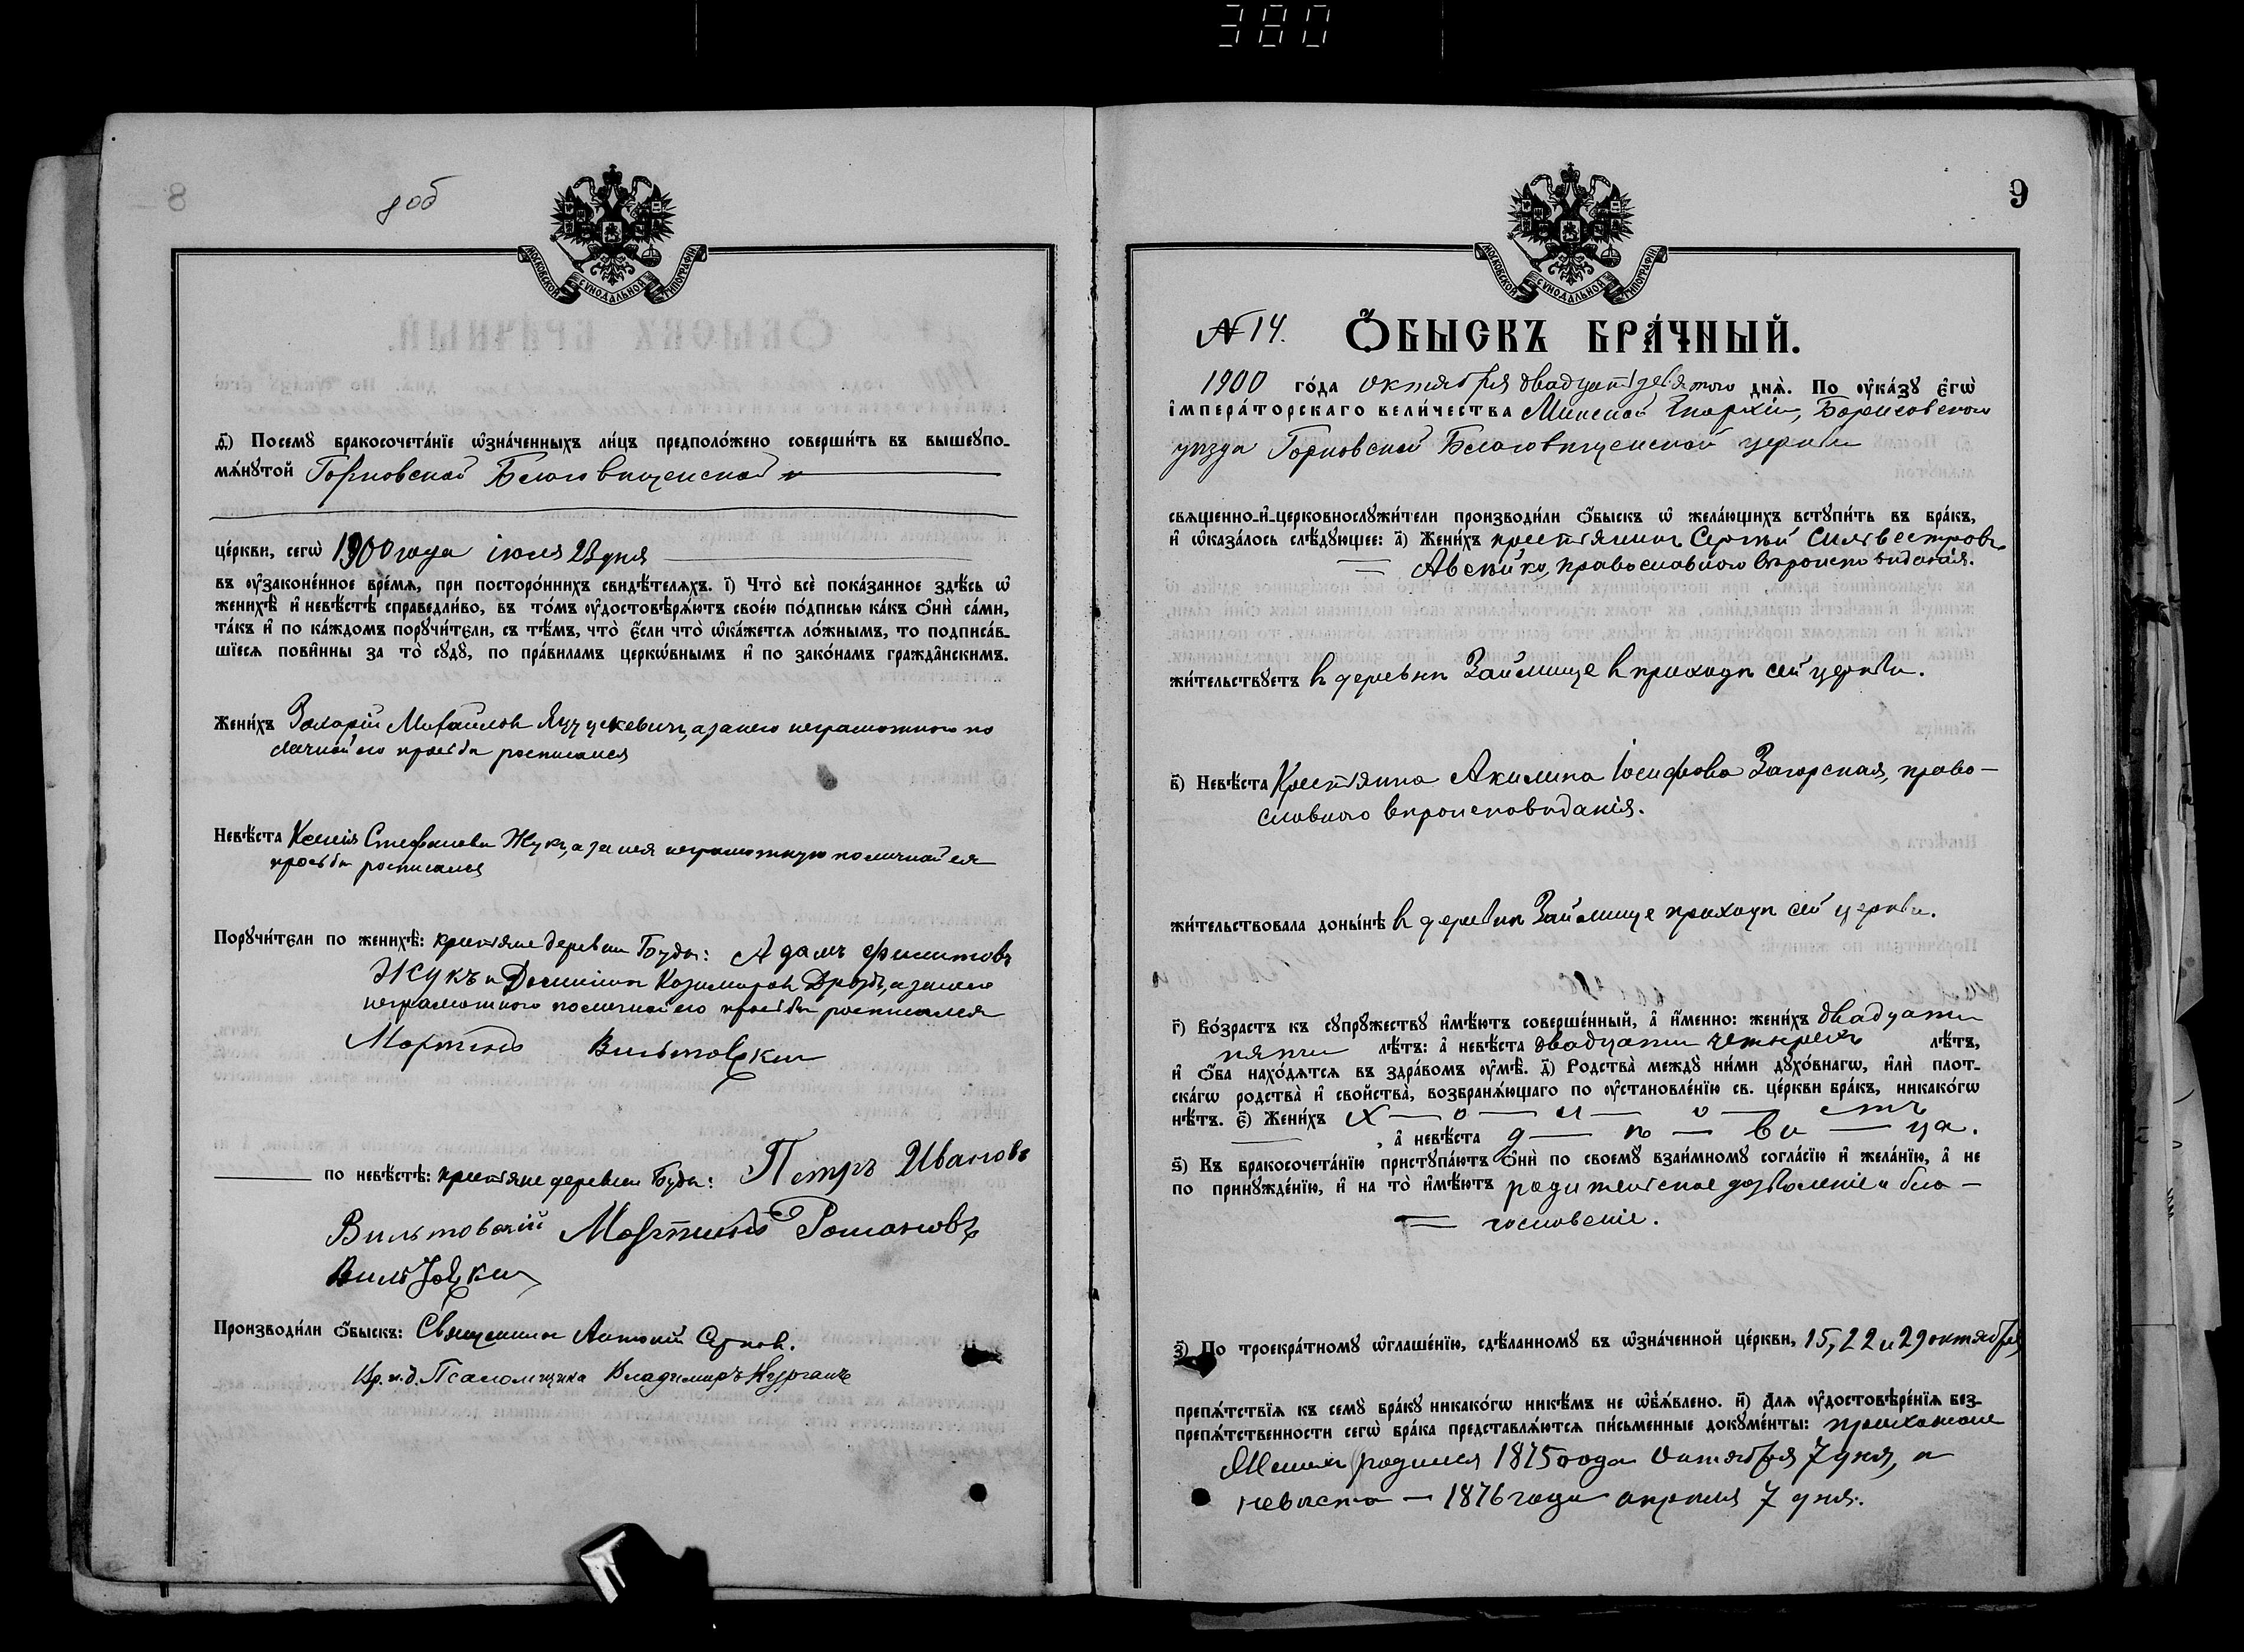 380
8 об
МОСКОВСКОЙ СѴНОДАЛЬНОЙ ТИПОГРАФІИ
д҃і) Посемꙋ бракосочета́нїе ѡ҆зна́ченныхъ ли́цъ предполо́жено соверши́ть въ вышеупо-
мѧ́нутой Горковской Благовѣщенской
це́ркви, сегѡ̀ 1900 года іюля 23 дня
въ ᲂу҆законе́нное вре́мѧ, при посторо́ннихъ свидѣ́телѧхъ. і҃) Что̀ всѐ пока́занное здѣ́сь ѡ҆
женихѣ̀ и҆ невѣ́стѣ справедли́во, въ то́мъ ᲂу҆достовѣрѧ́ютъ свое́ю по́дписью ка́къ ѻ҆нѝ са́ми,
та́къ и҆ по ка́ждомъ порꙋчи́тели, съ тѣ́мъ, что̀ є҆́сли что̀ ѡ҆ка́жетсѧ ло́жнымъ, то подписа́в-
шїесѧ пови́нны за то̀ сꙋдꙋ̀, по пра́виламъ церкѡ́внымъ и҆ по зако́намъ гражда̂нскимъ.
Жени́хъ Захарій Михайловъ Яцушкевичъ, а за него неграмотнаго по
личной его просьбѣ росписался
Невѣ́ста Ксенія Стефанова Жукъ, а за нея неграмотную по личной ея
просьбѣ росписался
Порꙋчи́тели по женихѣ̀: крестьяне деревни Буды: Адамъ Филиповъ
Жукъ и Доминикъ Казимировъ Дроздъ, а за него
неграмотнаго по личной его просьбѣ росписался
Мартинъ Вильтовски
по невѣ́стѣ: крестьяне деревни Буды: Петръ Ивановъ
Вильтовскій Мартинъ Романовъ
Вильтовски
Производи́ли ѻ҆́быскъ: Священникъ Антоній
Вр. и. д. Псаломщика Владимиръ Курганъ
9
МОСКОВСКОЙ СѴНОДАЛЬНОЙ ТИПОГРАФІИ
№ 14. Ѻ҆́БЫСКЪ БРА́ЧНЫЙ.
1900 го́да октября двадцать девятого днѧ̀. По ᲂу҆ка́зꙋ є҆гѡ̀
і҆мпера́торскаго вели́чества Минской Епархіи, Борисовскаго
уѣзда Горковской Благовѣщенской церкви
свѧщенно-и҆-церковнослꙋжи́тели производи́ли ѻ҆́быскъ ѡ҆ жела́ющихъ встꙋпи́ть въ бра́къ,
и҆ ѡ҆каза́лось слѣ́дꙋющее: а҃) Жени́хъ крестьянинъ Сергѣй Сильвестровъ
Авсѣйко, православнаго вѣроисповѣданія.
жи́тельствꙋетъ въ деревнѣ Займище въ приходѣ сей церкви.
в҃) Невѣ́ста Крестьянка Акилина Іосифова Загорская, право-
славнаго вѣроисповѣданія.
жи́тельствовала доны́нѣ въ деревнѣ Займище приходѣ сей церкви.
г҃) Во́зрастъ къ сꙋпрꙋ́жествꙋ и҆мѣ́ютъ соверше́нный, а҆ и҆́менно: жени́хъ двадцати
пяти лѣ́тъ: а҆ невѣ́ста двадцати четырехъ лѣ́тъ,
и҆ ѻ҆́ба нахо́дѧтсѧ въ здра́вомъ ᲂу҆мѣ̀. д҃) Родства̀ междꙋ ни́ми дꙋхо́внагѡ, и҆лѝ плот-
ска́гѡ родства̀ и҆ сво́йства, возбранѧ́ющаго по ᲂу҆становле́нїю св. це́ркви бра́къ, никако́гѡ
нѣ́тъ. є҃) Жени́хъ х — о — л — о — стъ
, а҆ невѣ́ста д — ѣ — ви — ца.
ѕ҃) Къ бракосочета́нїю пристꙋпа́ютъ ѻ҆нѝ по своемꙋ̀ взаи́мномꙋ согла́сїю и҆ жела́нїю, а҆ не
по принꙋжде́нїю, и҆ на то̀ и҆мѣ́ютъ родительское дозволеніе и бла-
гословеніе.
з҃) По троекра́тномꙋ ѡ҆глаше́нїю, сдѣ́ланномꙋ въ ѡ҆зна́ченной це́ркви, 15, 22 и 29 октября
препѧ́тствїѧ къ семꙋ̀ бра́кꙋ никако́гѡ никѣ́мъ не ѡ҆б̾ѧ́влено. и҃) Длѧ ᲂу҆достовѣре́нїѧ без-
препѧ́тственности сегѡ̀ бра́ка представлѧ́ютсѧ пи́сьменные докꙋме́нты: прихожане
Женихъ родился 1875 года октября 7 дня, а
невѣста — 1876 года апрѣля 7 дня.